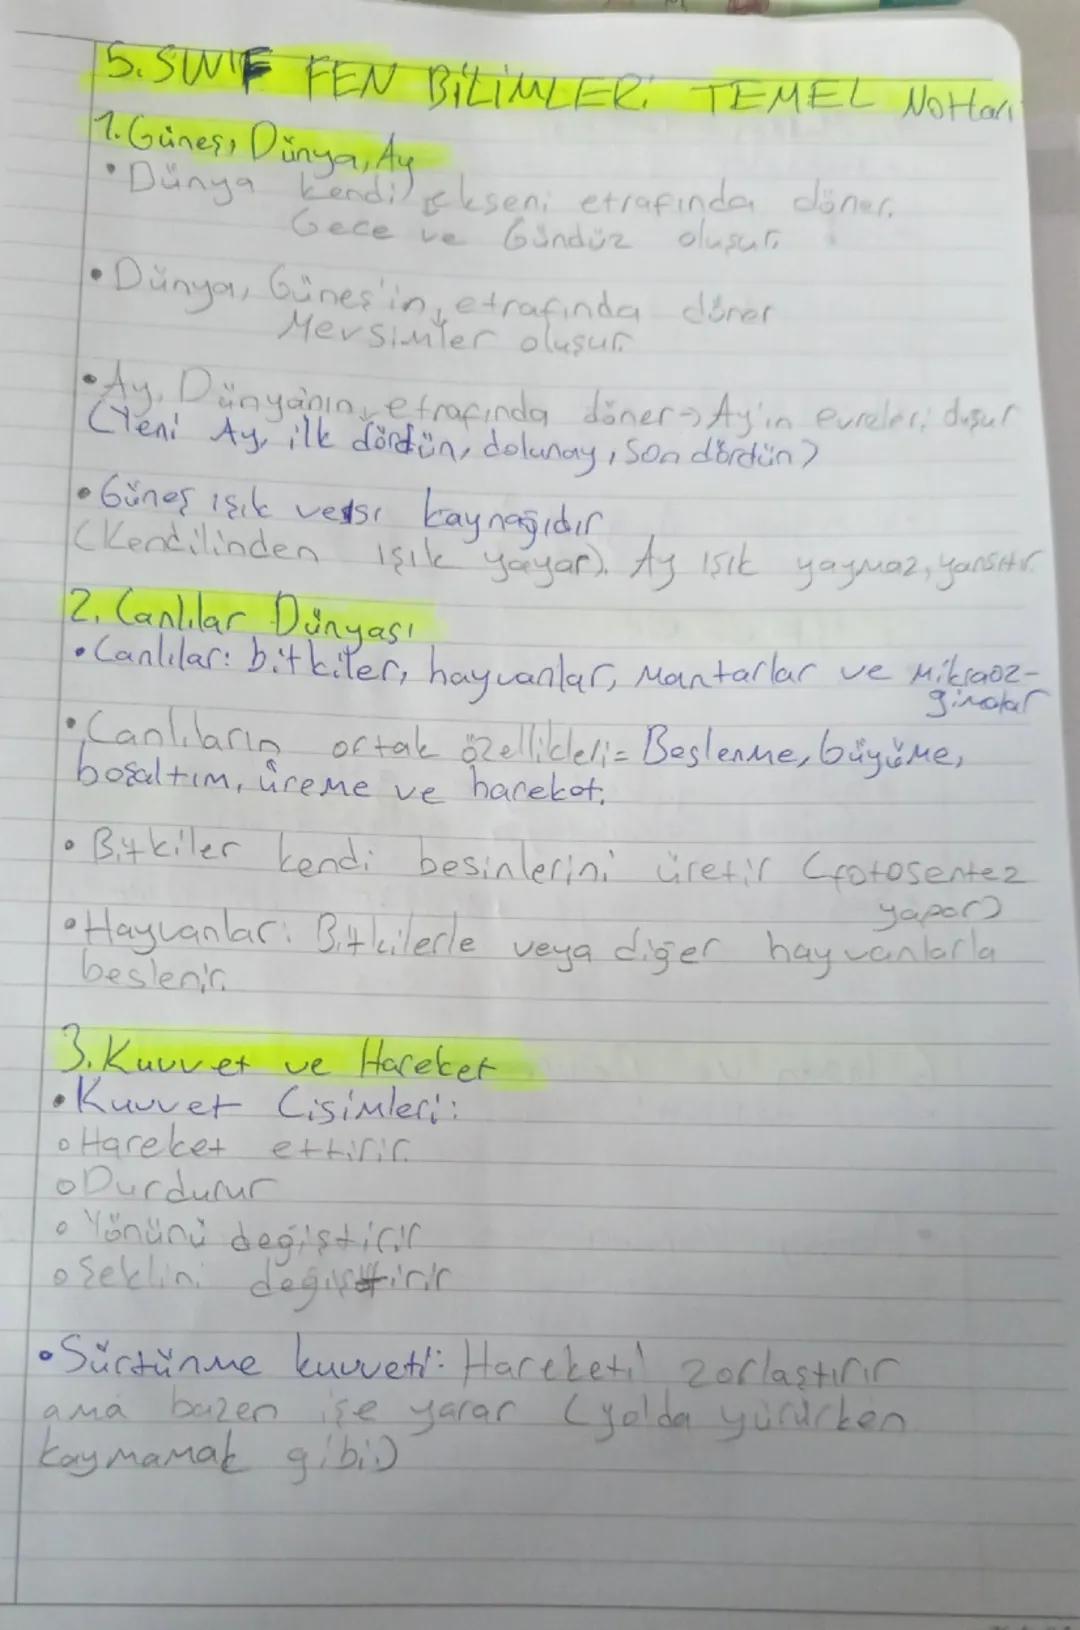 5. SINIF FEN BİLİMLERİ TEMEL Notları
1. Güneş, Dünya, Ay
• Dünya kendi ekseni etrafında döner.
Gece ve Gündüz oluşur.
• Dünya, Güneş'in etrafında döner
Mevsimler oluşur.
• Ay, Dünyanın etrafında döner → Ay'ın evreleri
(Yeni Ay, ilk dördün, dolunay, Son dördün)
• Güneş ışık ve ısı kaynağıdır
(Kendilinden ışık yayar). Ay ışık yaymaz, yansıtır.
2. Canlılar Dünyası
• Canlılar: bitkiler, hayvanlar, Mantarlar ve
• Canlıların ortak özellikleri= Beslenme, büyüme,
boşaltım, üreme ve hareket.
• Bitkiler kendi besinlerini üretir (fotosentez
yapar)
• Hayvanlar: Bitkilerle veya diğer hayvanlarla
beslenir.
3. Kuvvet ve Hareket
• Kuvvet Cisimleri:
o Hareket ettirir.
o Durdurur
o Yönünü değiştirir
o Şeklini değiştirir
• Sürtünme kuvveti: Hareketi zorlaştırır
ama bazen işe yarar (yolda yürürken
kaymamak gibi)